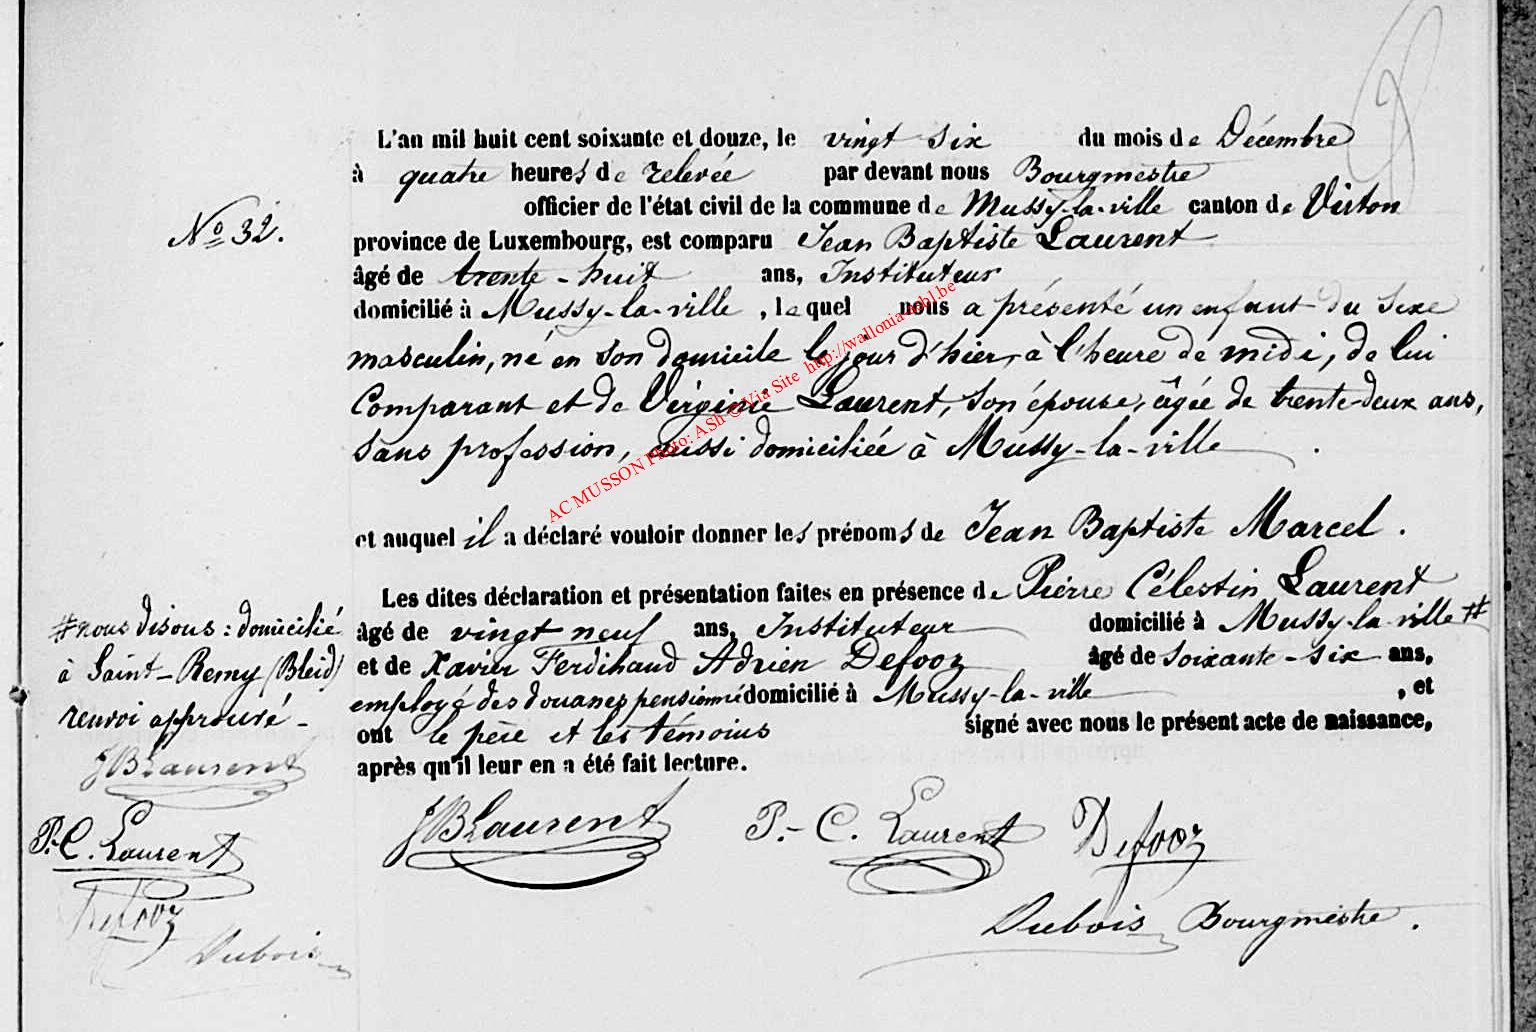 L'an mil huit cent soixante et douze, le vingt six du mois de Décembre
à quatre heures de relevée par devant nous Bourgmestre
officier de l'état civil de la commune de Mussy-la-ville canton de Virton
No 32.
province de Luxembourg, est comparu Jean Baptiste Laurent
âgé de trente-huit ans, Instituteur
domicilié à Mussy-la-ville, lequel nous a présenté un enfant du sexe
masculin, né en son domicile le jour d'hier, à l'heure de midi, de lui
Comparant et de Virginie Laurent, son épouse, âgée de trente-deux ans,
sans profession, aussi domiciliée à Mussy-la-ville.
AC MUSSON Photo: ASh © Via Site http://wallonia-asbl.be
et auquel il a déclaré vouloir donner les prénoms de Jean Baptiste Marcel.
Les dites déclaration et présentation faites en présence de Pierre Célestin Laurent
âgé de vingt neuf ans, Instituteur domicilié à Mussy-la-ville #
et de Xavier Ferdinand Adrien Defooz âgé de soixante-six ans,
employé des douanes pensionné domicilié à Mussy-la-ville, et
ont le père et les témoins signé avec nous le présent acte de naissance,
après qu'il leur en a été fait lecture.
# nous disons : domicilié
à Saint-Remy (Bleid)
renvoi approuvé -
JBLaurent
P.-C. Laurent
Defooz
Dubois
JBLaurent P.-C. Laurent Defooz
Dubois Bourgmestre.